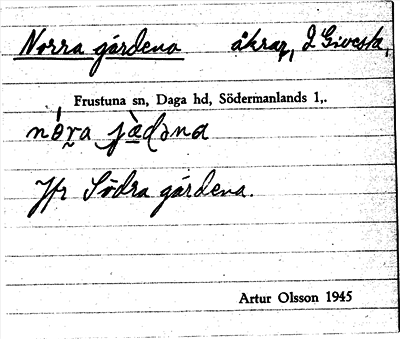 Norra gärdena åkrar, I Givesta,
Frustuna sn, Daga hd, Södermanlands l,.
Jfr Södra gärdena.
Artur Olsson 1945